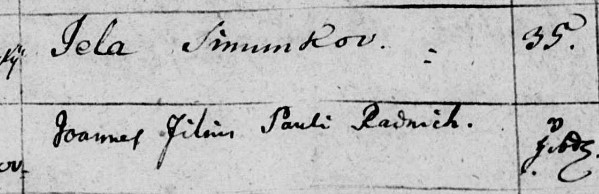 Jela Simunkov. 35.
Joannes Filius Pauli Radnich.